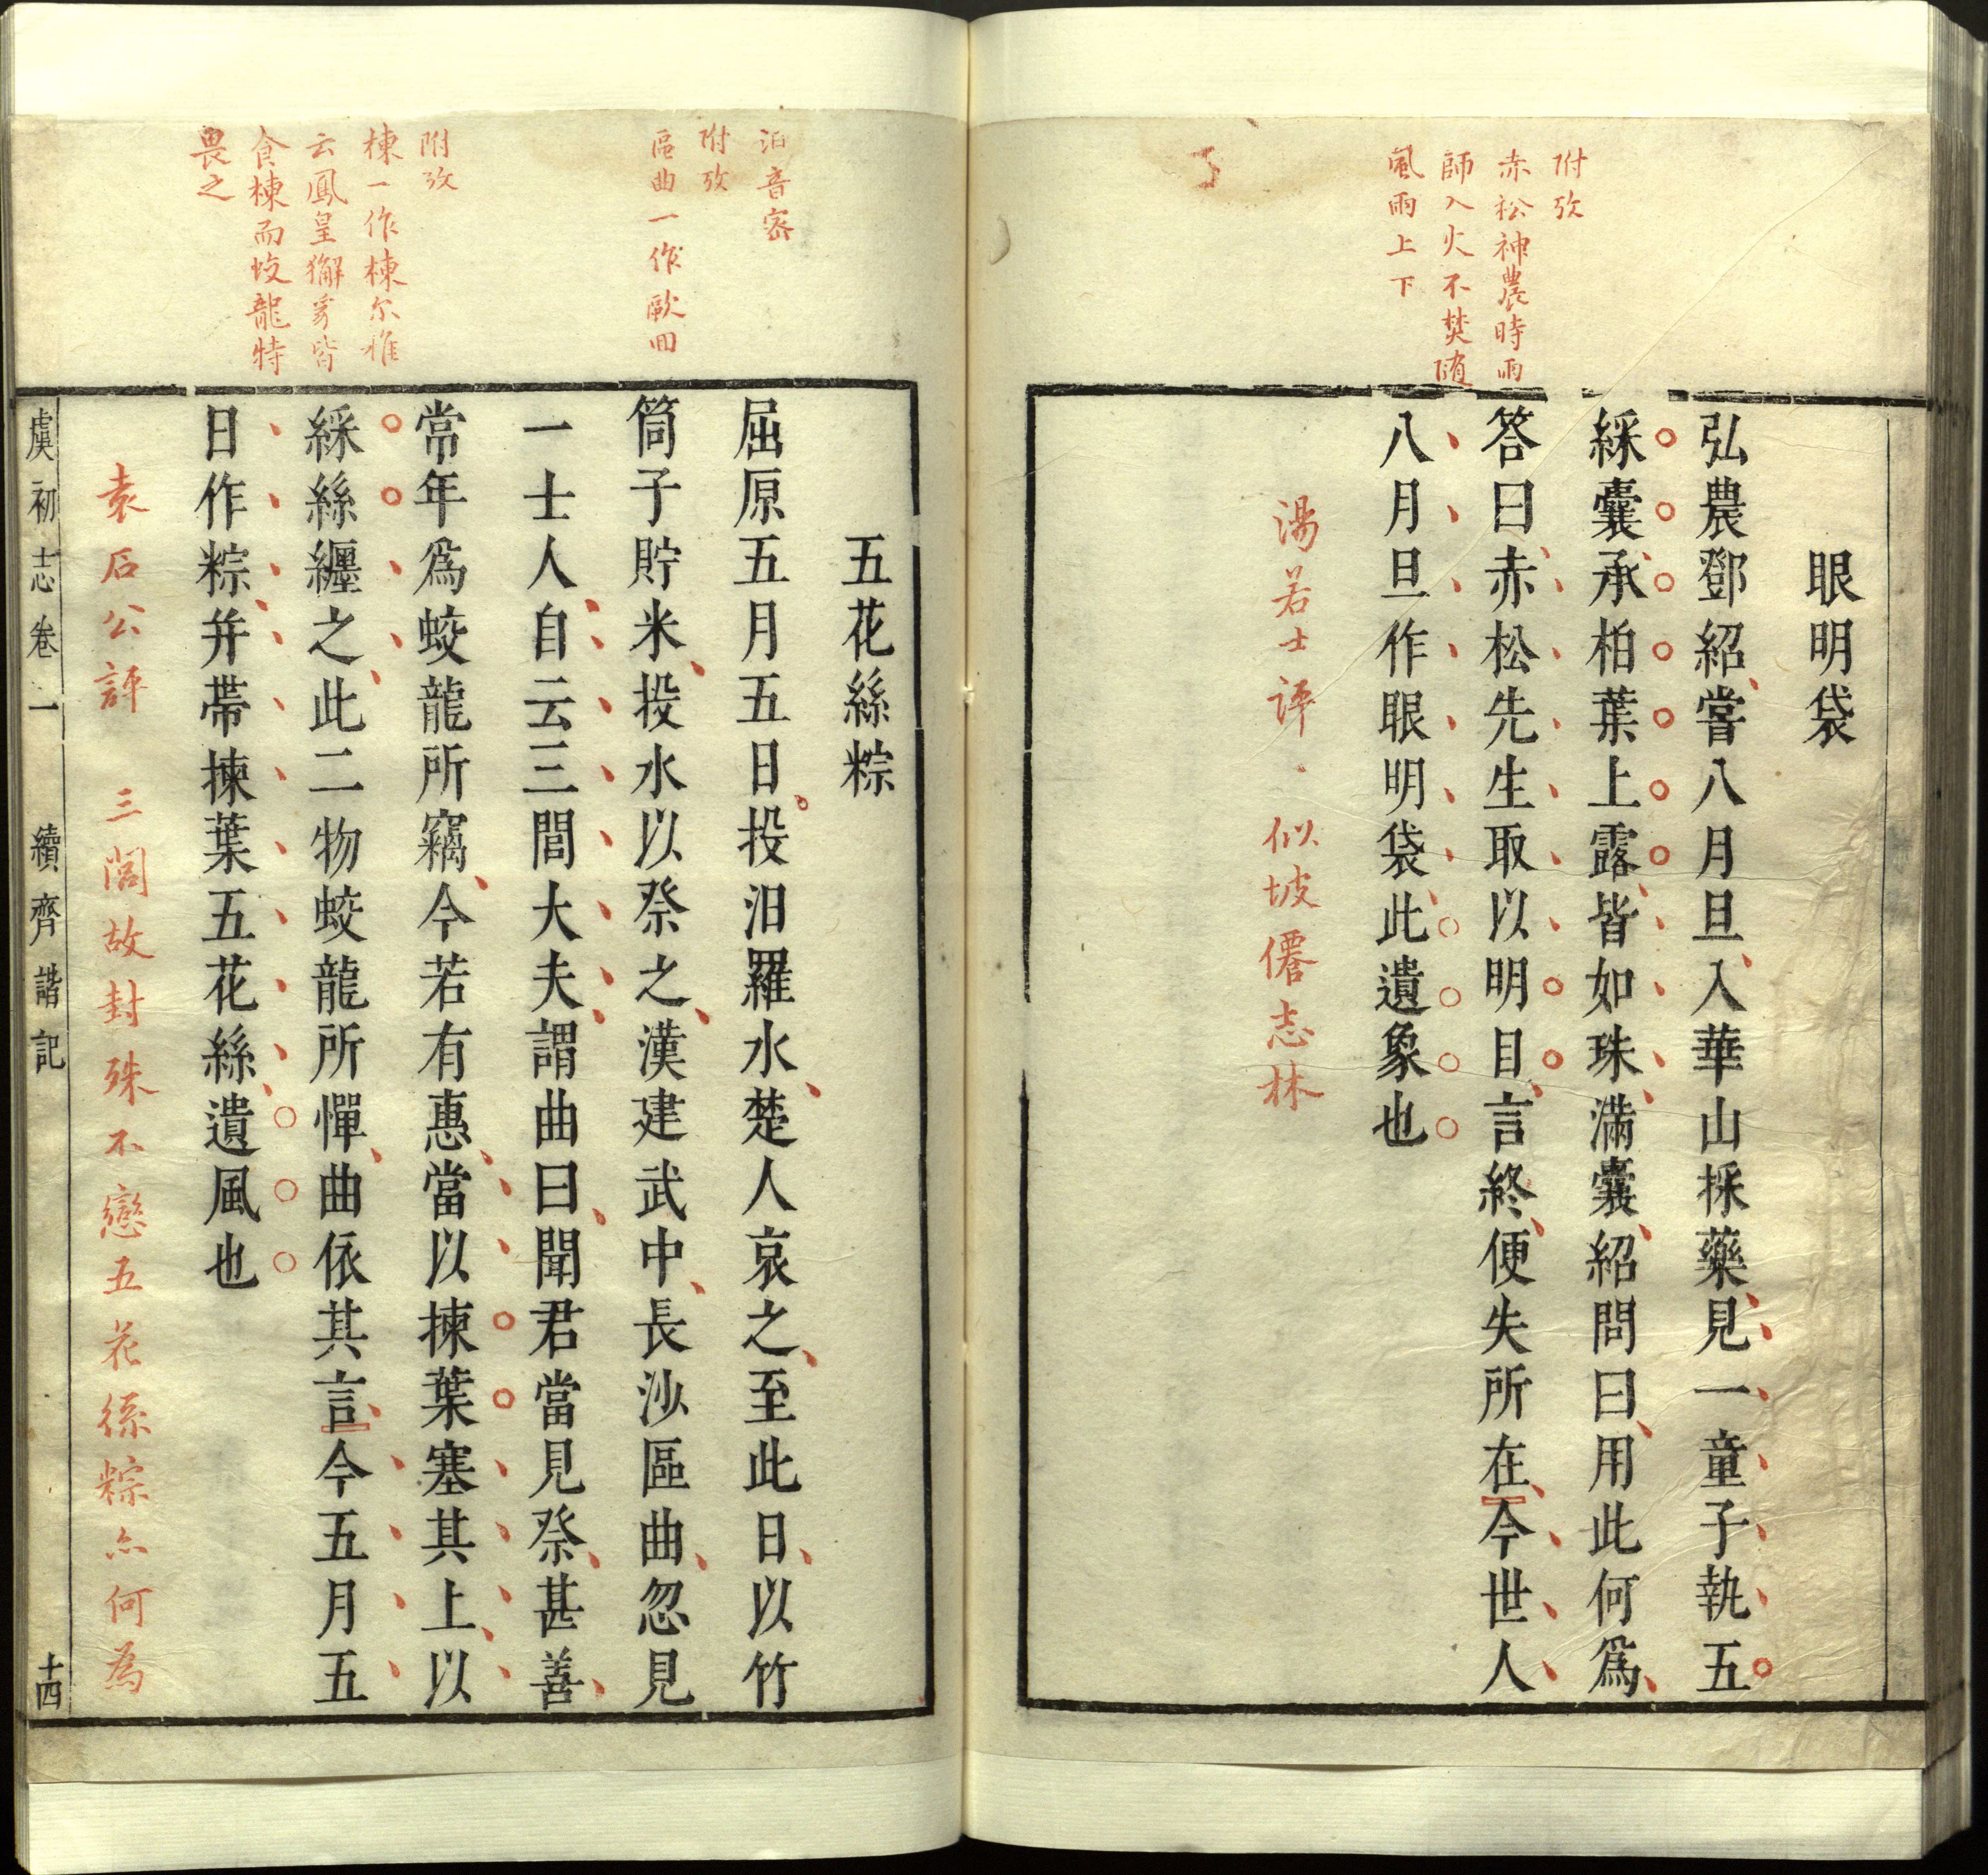 附攷
赤松神農時雨
師入火不焚隨
風雨上下
眼明袋
弘農鄧紹嘗八月旦入華山採藥見一童子執五
綵囊承柏葉上露皆如珠滿囊紹問曰用此何爲
答曰赤松先生取以明目言終便失所在今世人
八月旦作眼明袋此遺象也
湯若士評 似坡僊志林
汨音密
附攷
區曲一作歐回
附攷
楝一作楝尔雅
云鳳皇獬豸皆
食楝而蛟龍特
畏之
五花絲粽
屈原五月五日投汨羅水楚人哀之至此日以竹
筒子貯米投水以祭之漢建武中長沙區曲忽見
一士人自云三閭大夫謂曲曰聞君當見祭甚善
常年爲蛟龍所竊今若有惠當以揀葉塞其上以
綵絲纏之此二物蛟龍所憚曲依其言今五月五
日作粽并帶揀葉五花絲遺風也
袁石公評 三閭故封殊不戀五花絲粽亦何為
虞初志卷一 續齊諧記 十四